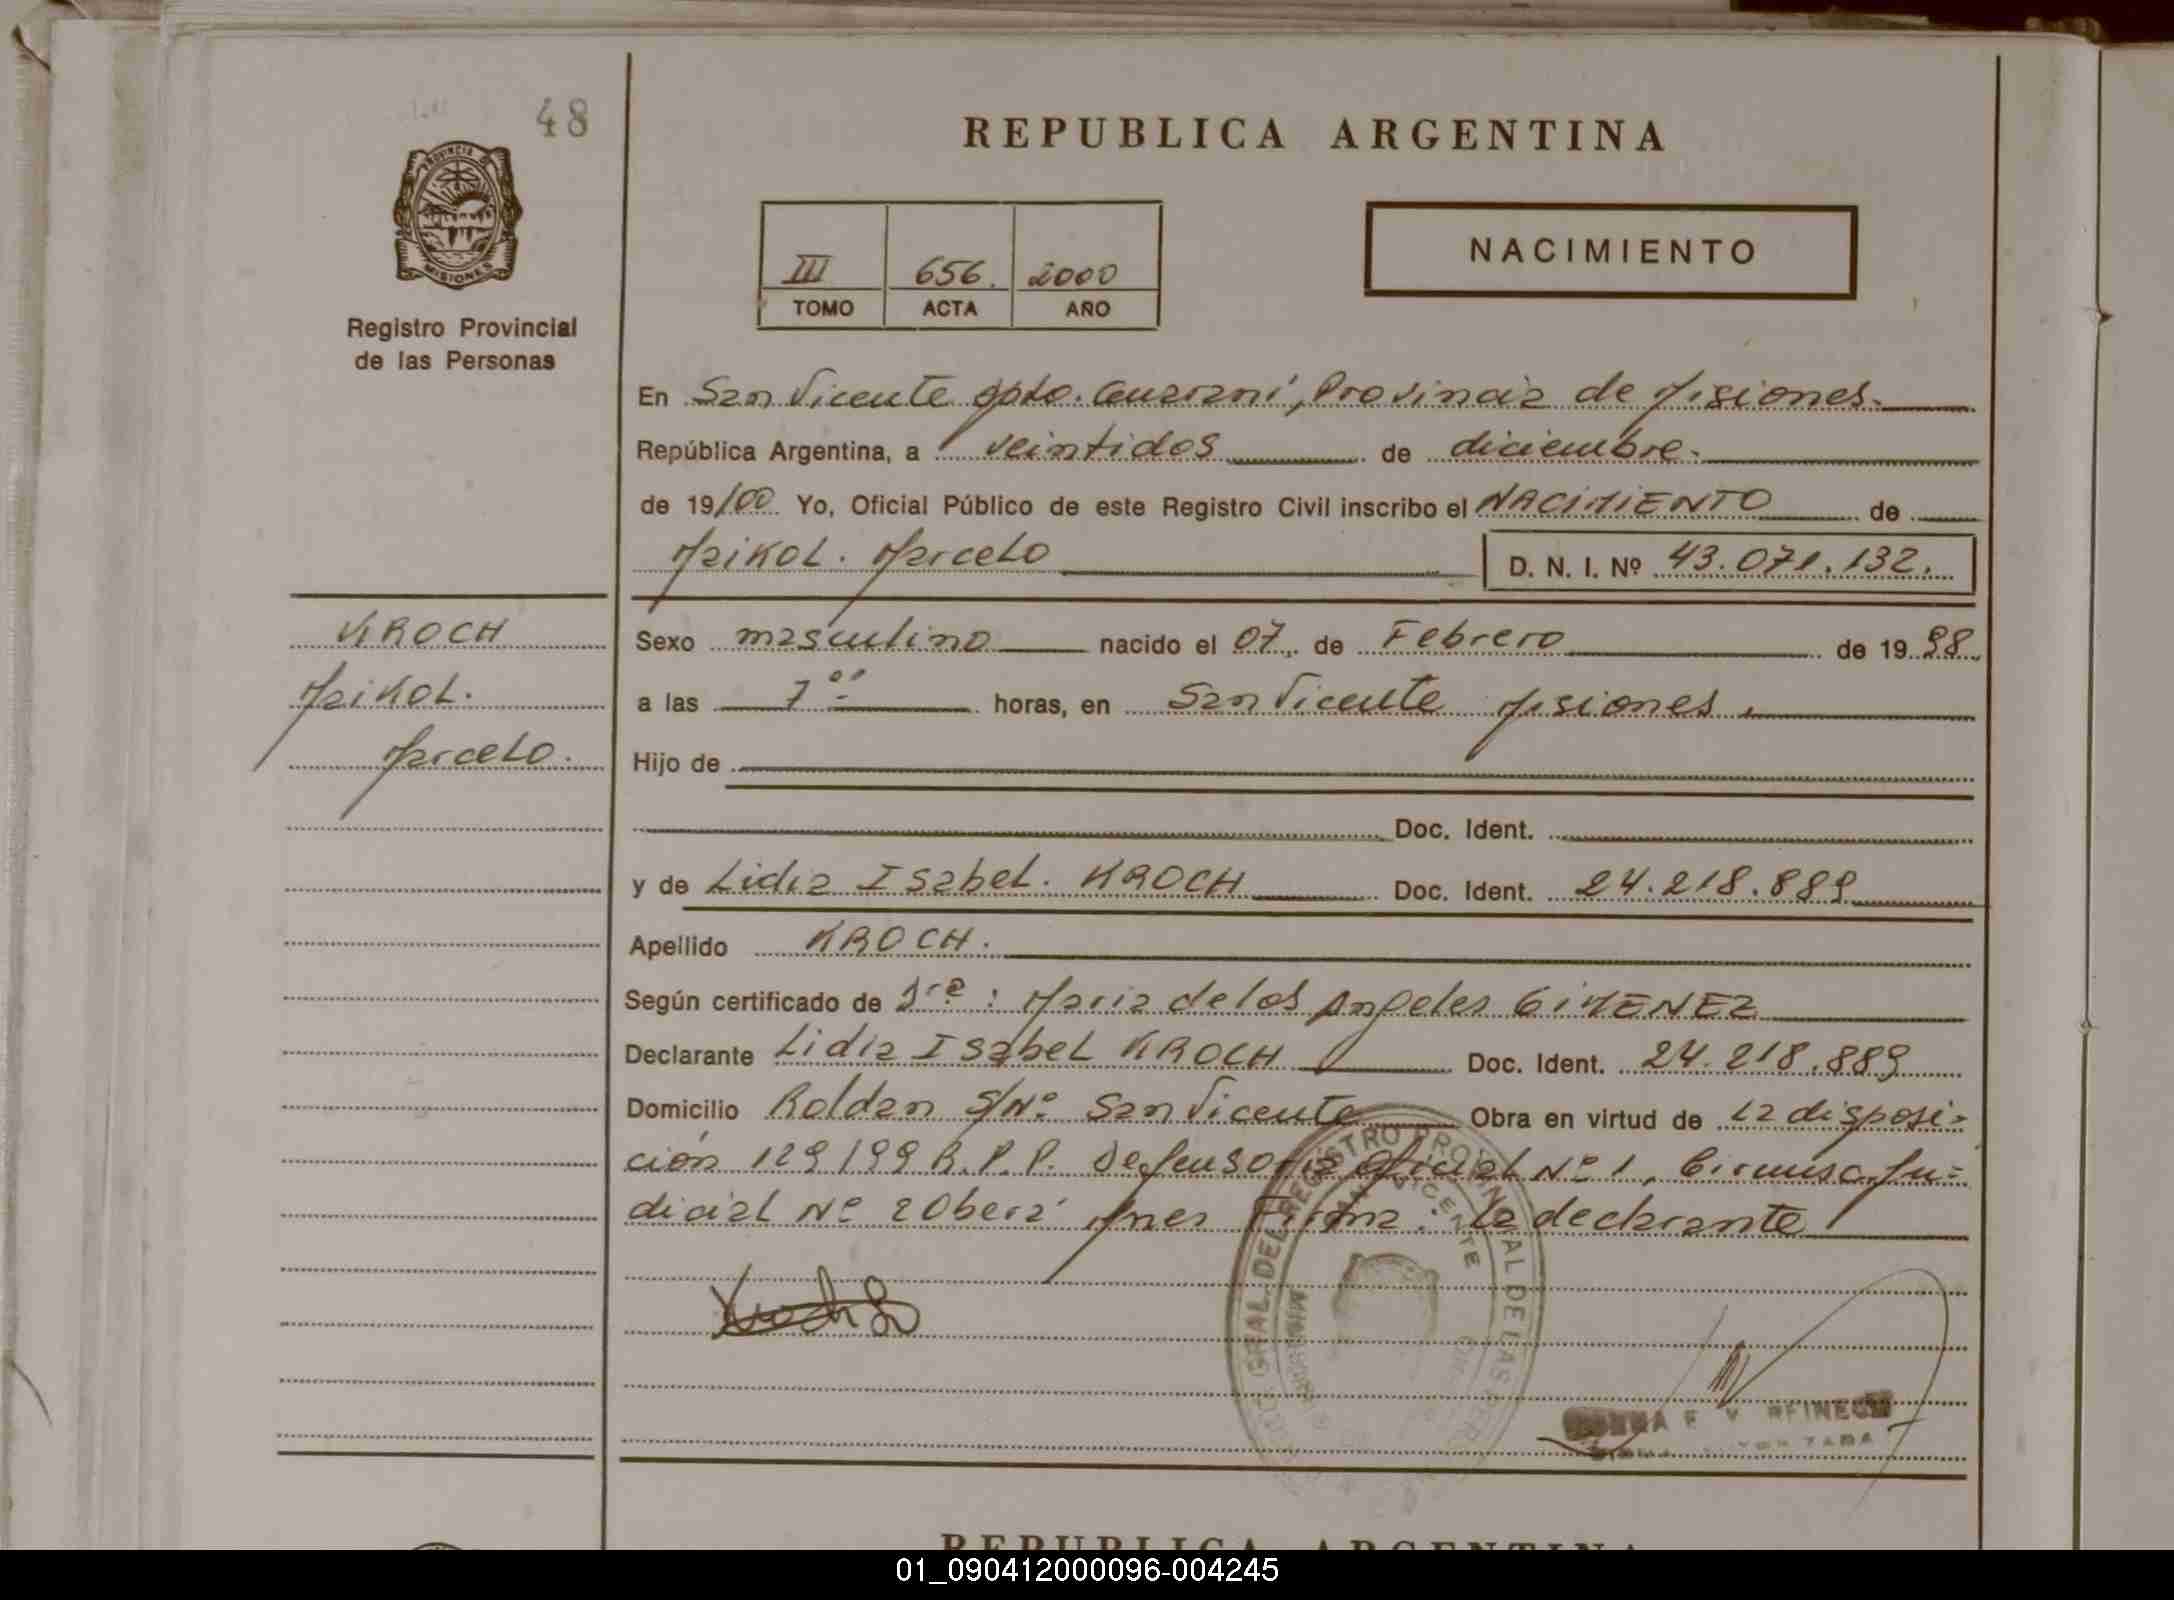 48
REPUBLICA ARGENTINA
PROVINCIA D
MISIONES
Registro Provincial
de las Personas
III 656. 2000
TOMO ACTA AÑO
NACIMIENTO
En San Vicente Dpto. Guaraní, Provincia de Misiones.
República Argentina, a veintidos de diciembre.
de 19/00 Yo, Oficial Público de este Registro Civil inscribo el NACIMIENTO de
Maikol. Marcelo D. N. I. Nº 43.071.132.
KROCH
Maikol.
Marcelo.
Sexo masculino nacido el 07 de Febrero de 1998
a las 7°° horas, en San Vicente Misiones.
Hijo de
Doc. Ident.
y de Lidia Isabel. KROCH Doc. Ident. 24.218.889
Apellido KROCH.
Según certificado de Dra: Maria de los Angeles GIMENEZ
Declarante Lidia Isabel KROCH Doc. Ident. 24.218.889
Domicilio Roldan S/Nº San Vicente Obra en virtud de la disposi=
ción 129/99 R.P.P. Defensoria Oficial Nº 1, Circunsc. Ju=
dicial Nº 2 Obera Mnes Firma: la declarante
REGISTRO PROVINCIAL DE LAS
SAN VICENTE
REPUBLICA ARGENTINA
01_090412000096-004245